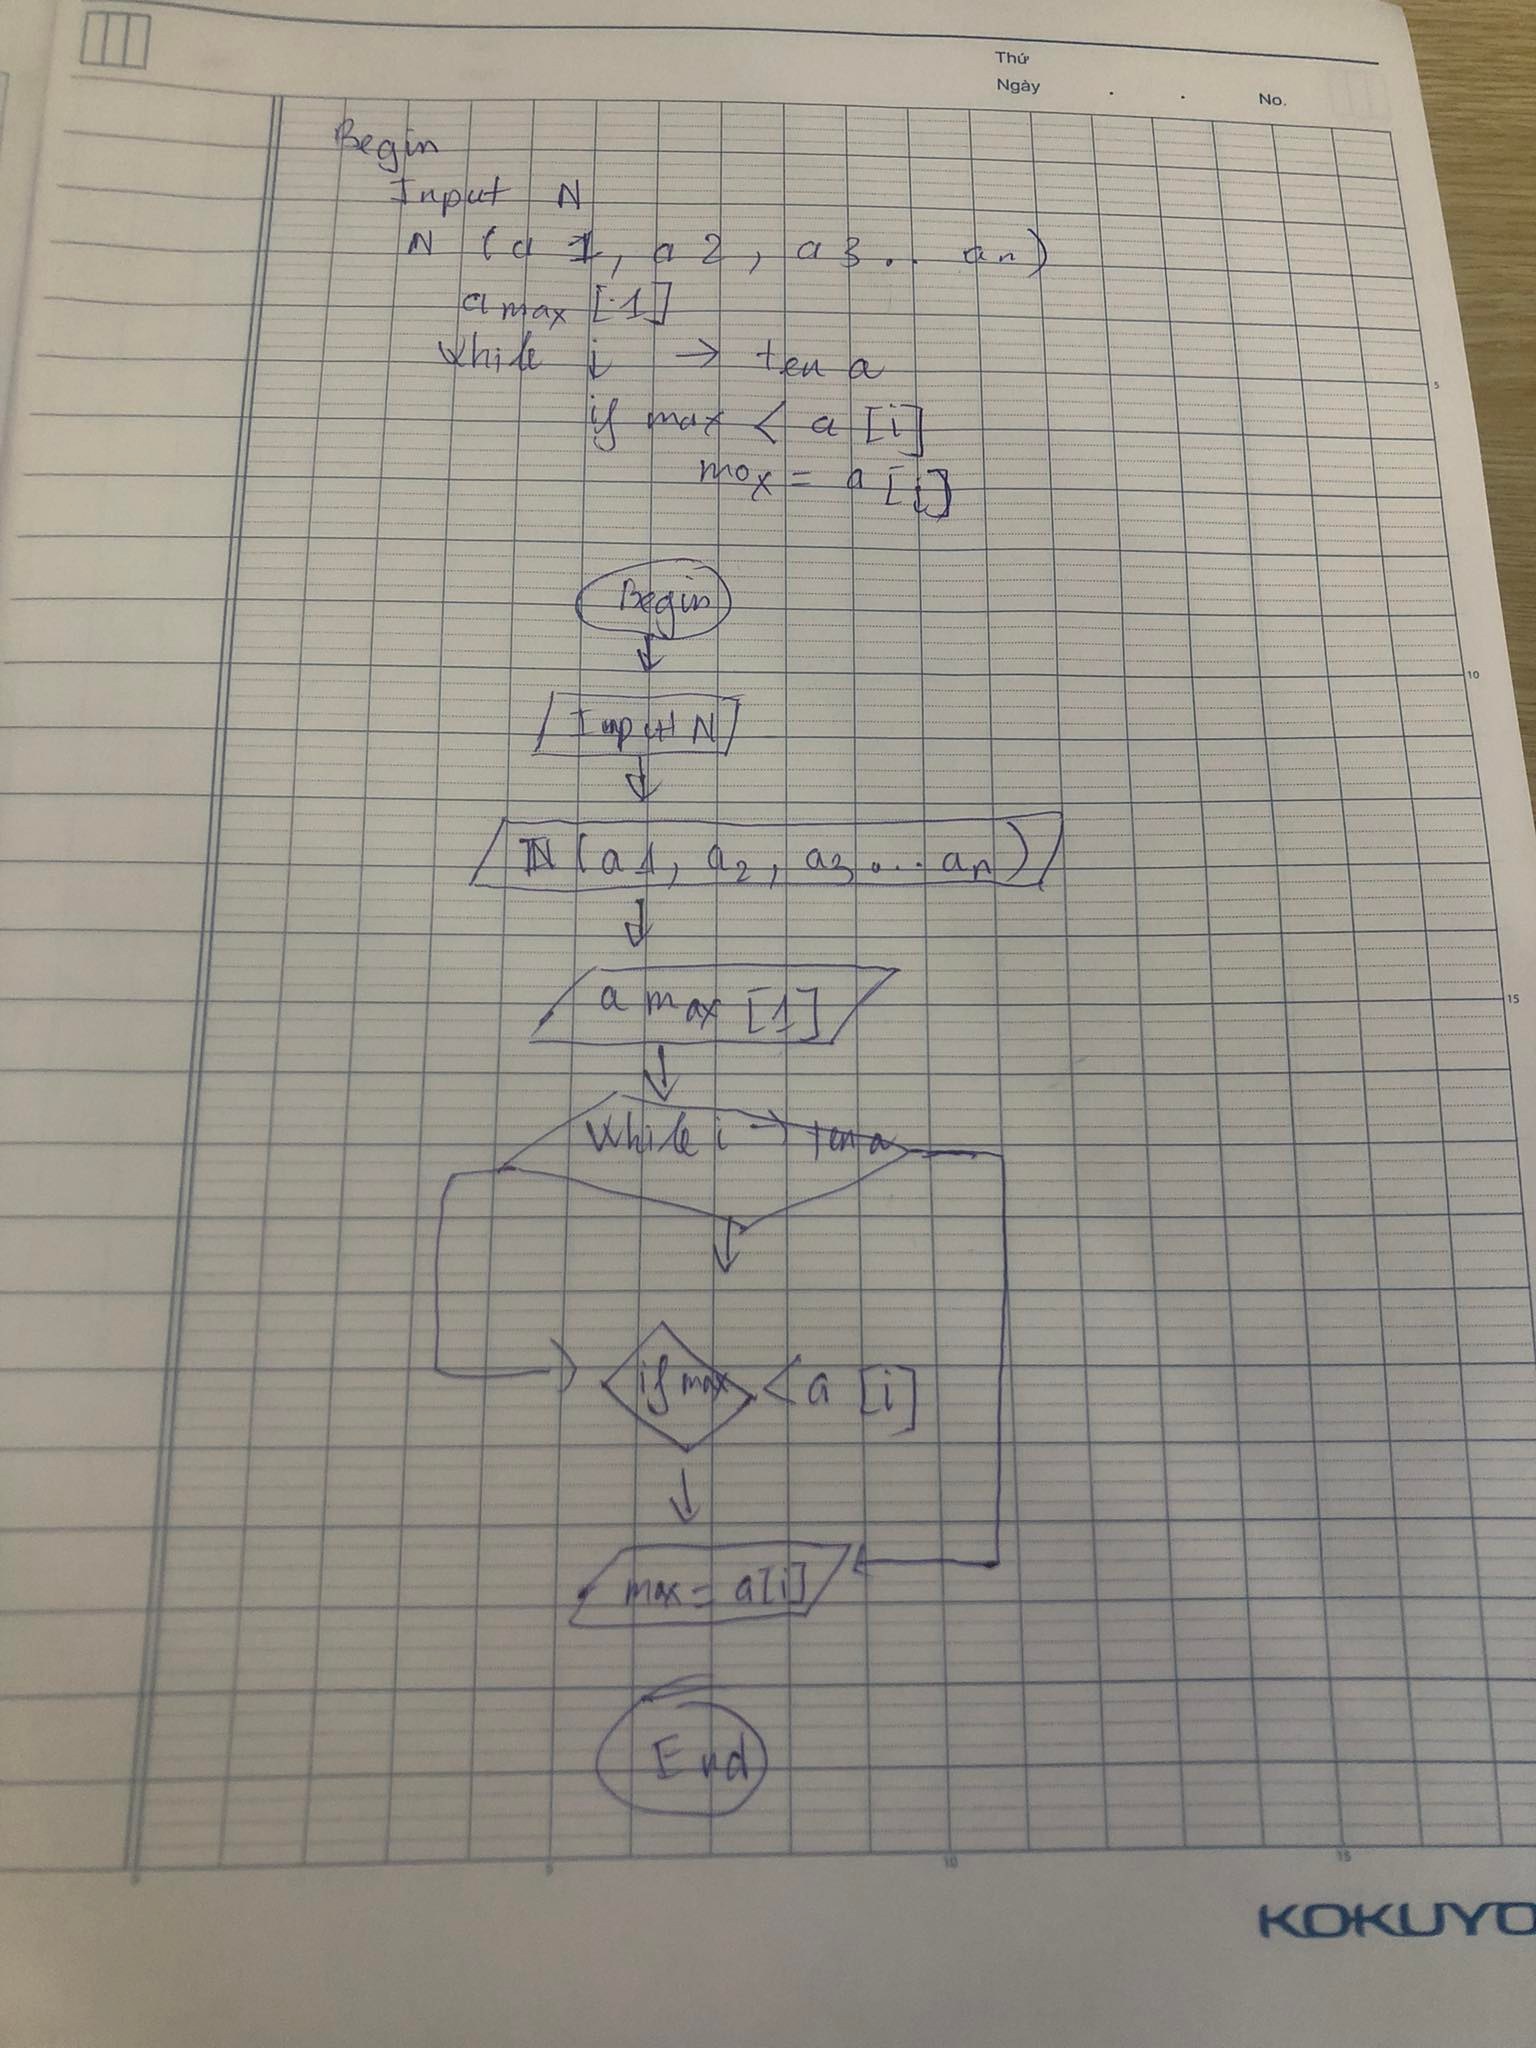 Thứ
Ngày . . No.
Begin
Input N
N (a 1, a 2, a 3.. an)
a max [1]
While i → ten a
if max < a [i]
max = a [i]
5
Begin
Input N
10
N (a1, a2, a3... an)
a max [1]
15
While i → ten a
if max < a [i]
max = a[i]
End
5 10 15
KOKUYO